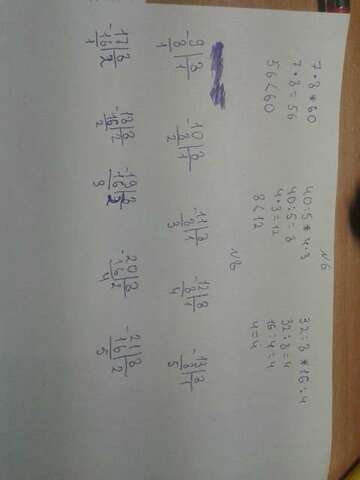 N6
7·8 * 60   40:5 * 4·3   32:8 * 16:4
7·8=56   40:5=8   32:8=4
56<60   4·3=12   16:4=4
8<12   4=4
N8
-9|8   -10|8   -11|8   -12|8   -13|8
8|1   8|1   8|1   8|1   8|1
1   2   3   4   5
-17|8   -18|8   -19|8   -20|8   -21|8
16|2   16|2   16|2   16|2   16|2
1   2   3   4   5